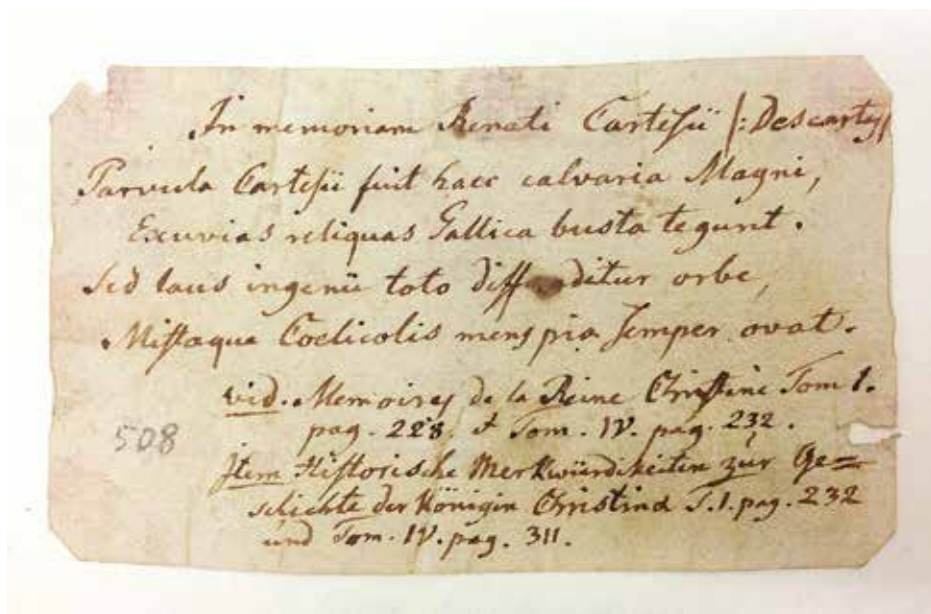 In memoriam Renati Cartesii /: Descartes/
Parvula Cartesii fuit haec calvaria Magni,
Exuvias reliquas Gallica busta tegunt.
Sed laus ingenii toto diffunditur orbe,
Mistaque Coelicolis mens pia semper ovat.
vid. Memoires de la Reine Christine Tom 1.
pag. 228. et Tom. IV. pag. 232.
508
Item Historische Merkwürdikeiten zur Ge=
schichte der Königin Christina T.1. pag. 232
und Tom. IV. pag. 311.